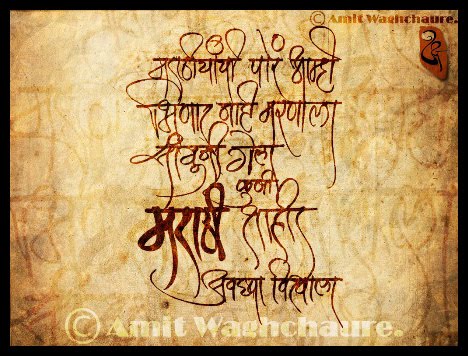 © Amit Waghchaure.
मराठीयांची पोरं आम्ही
भिणार नाही मरणाला
सांगुनी गेला
कुणी
मराठी शाहीर
अवघ्या विश्वाला
© Amit Waghchaure.